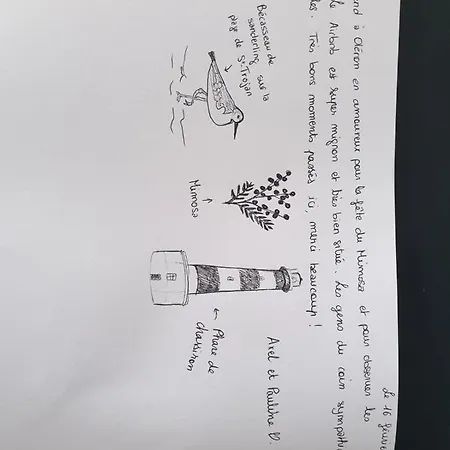 Le 16 févrie
end à Oléron en amoureux pour la fête du Mimosa et pour observer les
Le Airbnb et super mignon et très bien situé. Les gens du coin sympathi
les. Très bons moments passés ici, merci beaucoup !
Axel et Pauline D.
Bécasseau de
sanderling sur la
plage de St-Trojan
Mimosa
Phare de
chassiron